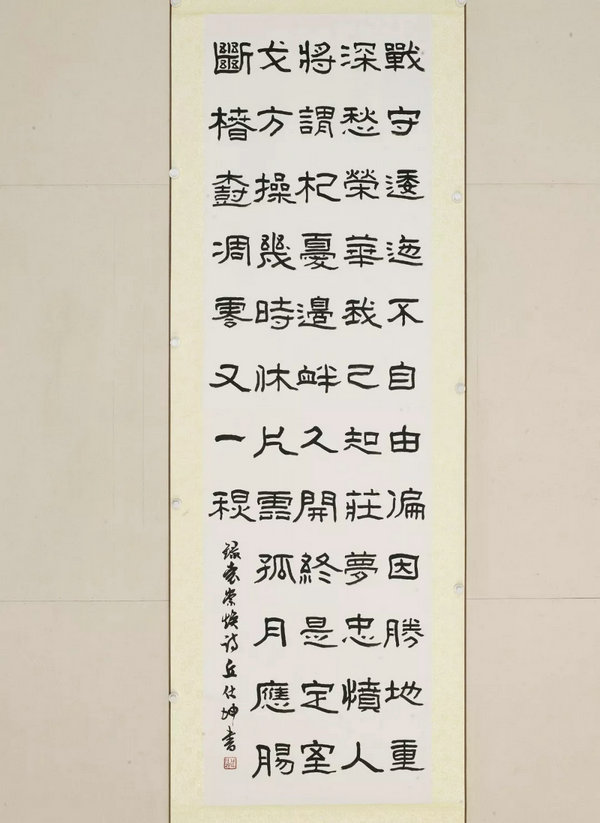 戰守逶迤不自由偏因勝地重
深愁榮華我已知莊夢忠憤人
將謂杞憂邊衅久開終是定室
戈方操幾時休片雲孤月應腸
斷椿樹凋零又一秋
録袁崇煥詩丘仕坤書